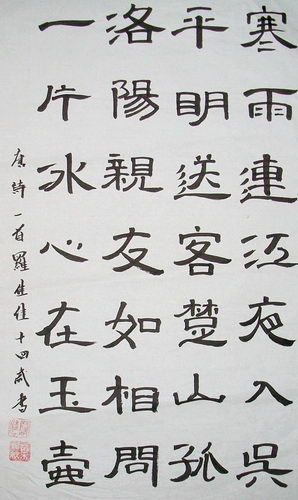 寒雨連江夜入吳
平明送客楚山孤
洛陽親友如相問
一片冰心在玉壺
唐詩一首羅佳佳十四歲書